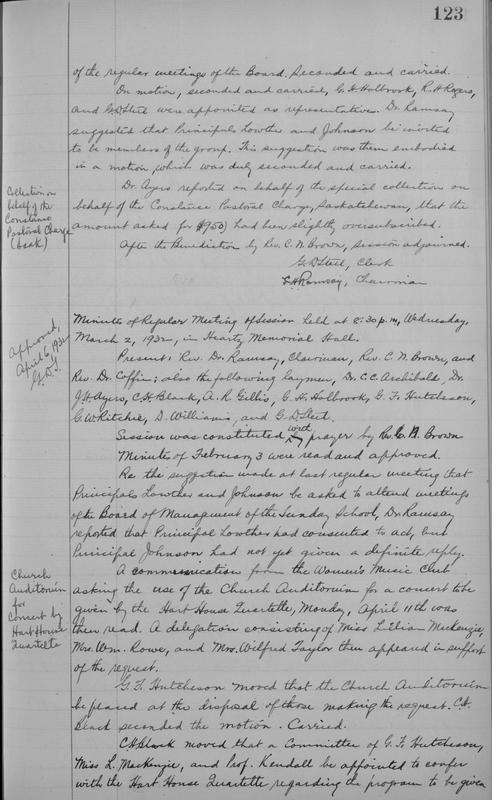 123
of the regular meetings of the Board. Seconded and carried.
On motion, seconded and carried, G. H. Holbrook, R. H. Rogers,
and G. D. Steel were appointed as representatives. Dr. Ramsay
suggested that Principals Lowther and Johnson be invited
to be members of the group. This suggestion was then embodied
in a motion, which was duly seconded and carried.
Collection on
behalf of the
Constance
Pastoral Charge
(Sask.)
Dr. Ayers reported on behalf of the special collection on
behalf of the Constance Pastoral Charge, Saskatchewan, that the
amount asked for ($950) had been slightly oversubscribed.
After the Benediction by Rev. C. N. Brown, session adjourned.
G. D. Steel, Clerk
Ramsay, Chairman
Approved,
April 6, 1932
G. D. S.
Minutes of Regular Meeting of Session held at 8:30 p.m, Wednesday,
March 2, 1932, in Heartz Memorial Hall.
Present: Rev. Dr. Ramsay, Chairman, Rev. C. N. Brown, and
Rev. Dr. Coffin; also the following laymen, Dr. C. C. Archibald, Dr.
J. H. Ayers, C. H. Black, A. R. Gillis, G. H. Holbrook, G. F. Hutcheson,
G. W. Ritchie, D. Williams, and G. D. Steel.
Session was constituted with prayer by Rev. C. N. Brown
Minutes of February 3 were read and approved.
Re the suggestion made at last regular meeting that
Principals Lowther and Johnson be asked to attend meetings
of the Board of Management of the Sunday School, Dr. Ramsay
reported that Principal Lowther had consented to act, but
Principal Johnson had not yet given a definite reply.
Church
Auditorium
for
Concert by
Hart House
Quartette
A communication from the Women's Music Club
asking the use of the Church Auditorium for a concert to be
given by the Hart House Quartette, Monday, April 11th was
then read. A delegation consisting of Miss Lillian McKenzie,
Mrs. Wm. Rowe, and Mrs. Wilfred Taylor then appeared in support
of the request.
G. F. Hutcheson moved that the Church Auditorium
be placed at the disposal of those making the request. C. H.
Black seconded the motion. Carried.
C. H. Black moved that a Committee of G. F. Hutcheson,
Miss L. MacKenzie, and Prof. Kendall be appointed to confer
with the Hart House Quartette regarding the program to be given